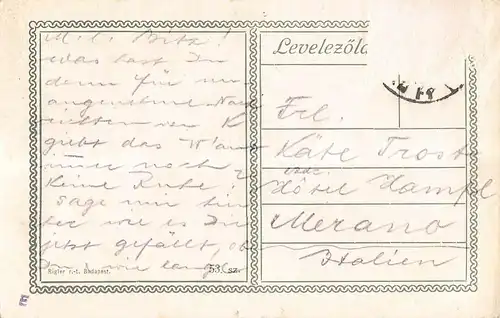 M. l. Betz!
was hast Du
denn für un-
angenehme Nach-
richten
gibt das
immer noch
keine Ruhe?
sage mir bitte
wie es Dir
jetzt gefällt, ob
Du wie lange
Rigler r.-t. Budapest.
53. sz.
E
Levelező
Frl.
Käte Trost
Hotel Hampl
Merano
Italien